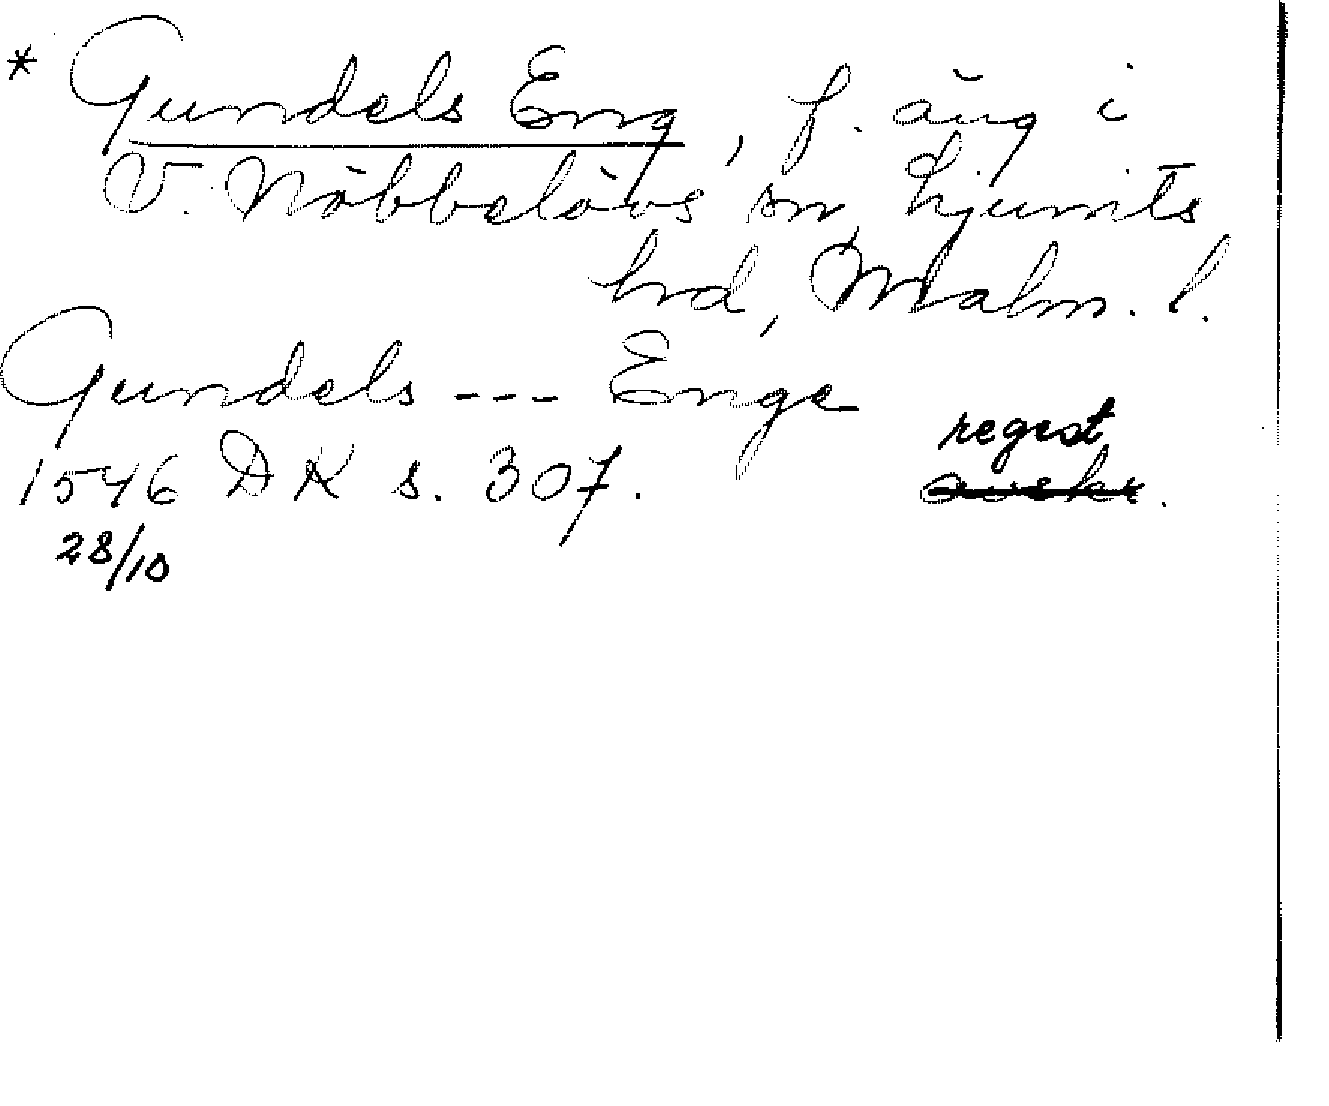 * Gundels Eng, f. äng i
V. Nöbbelövs sn, Ljunits
hrd, Malm. l.
Gundels --- Enge
regest
1546 DK s. 307. avskr.
28/10